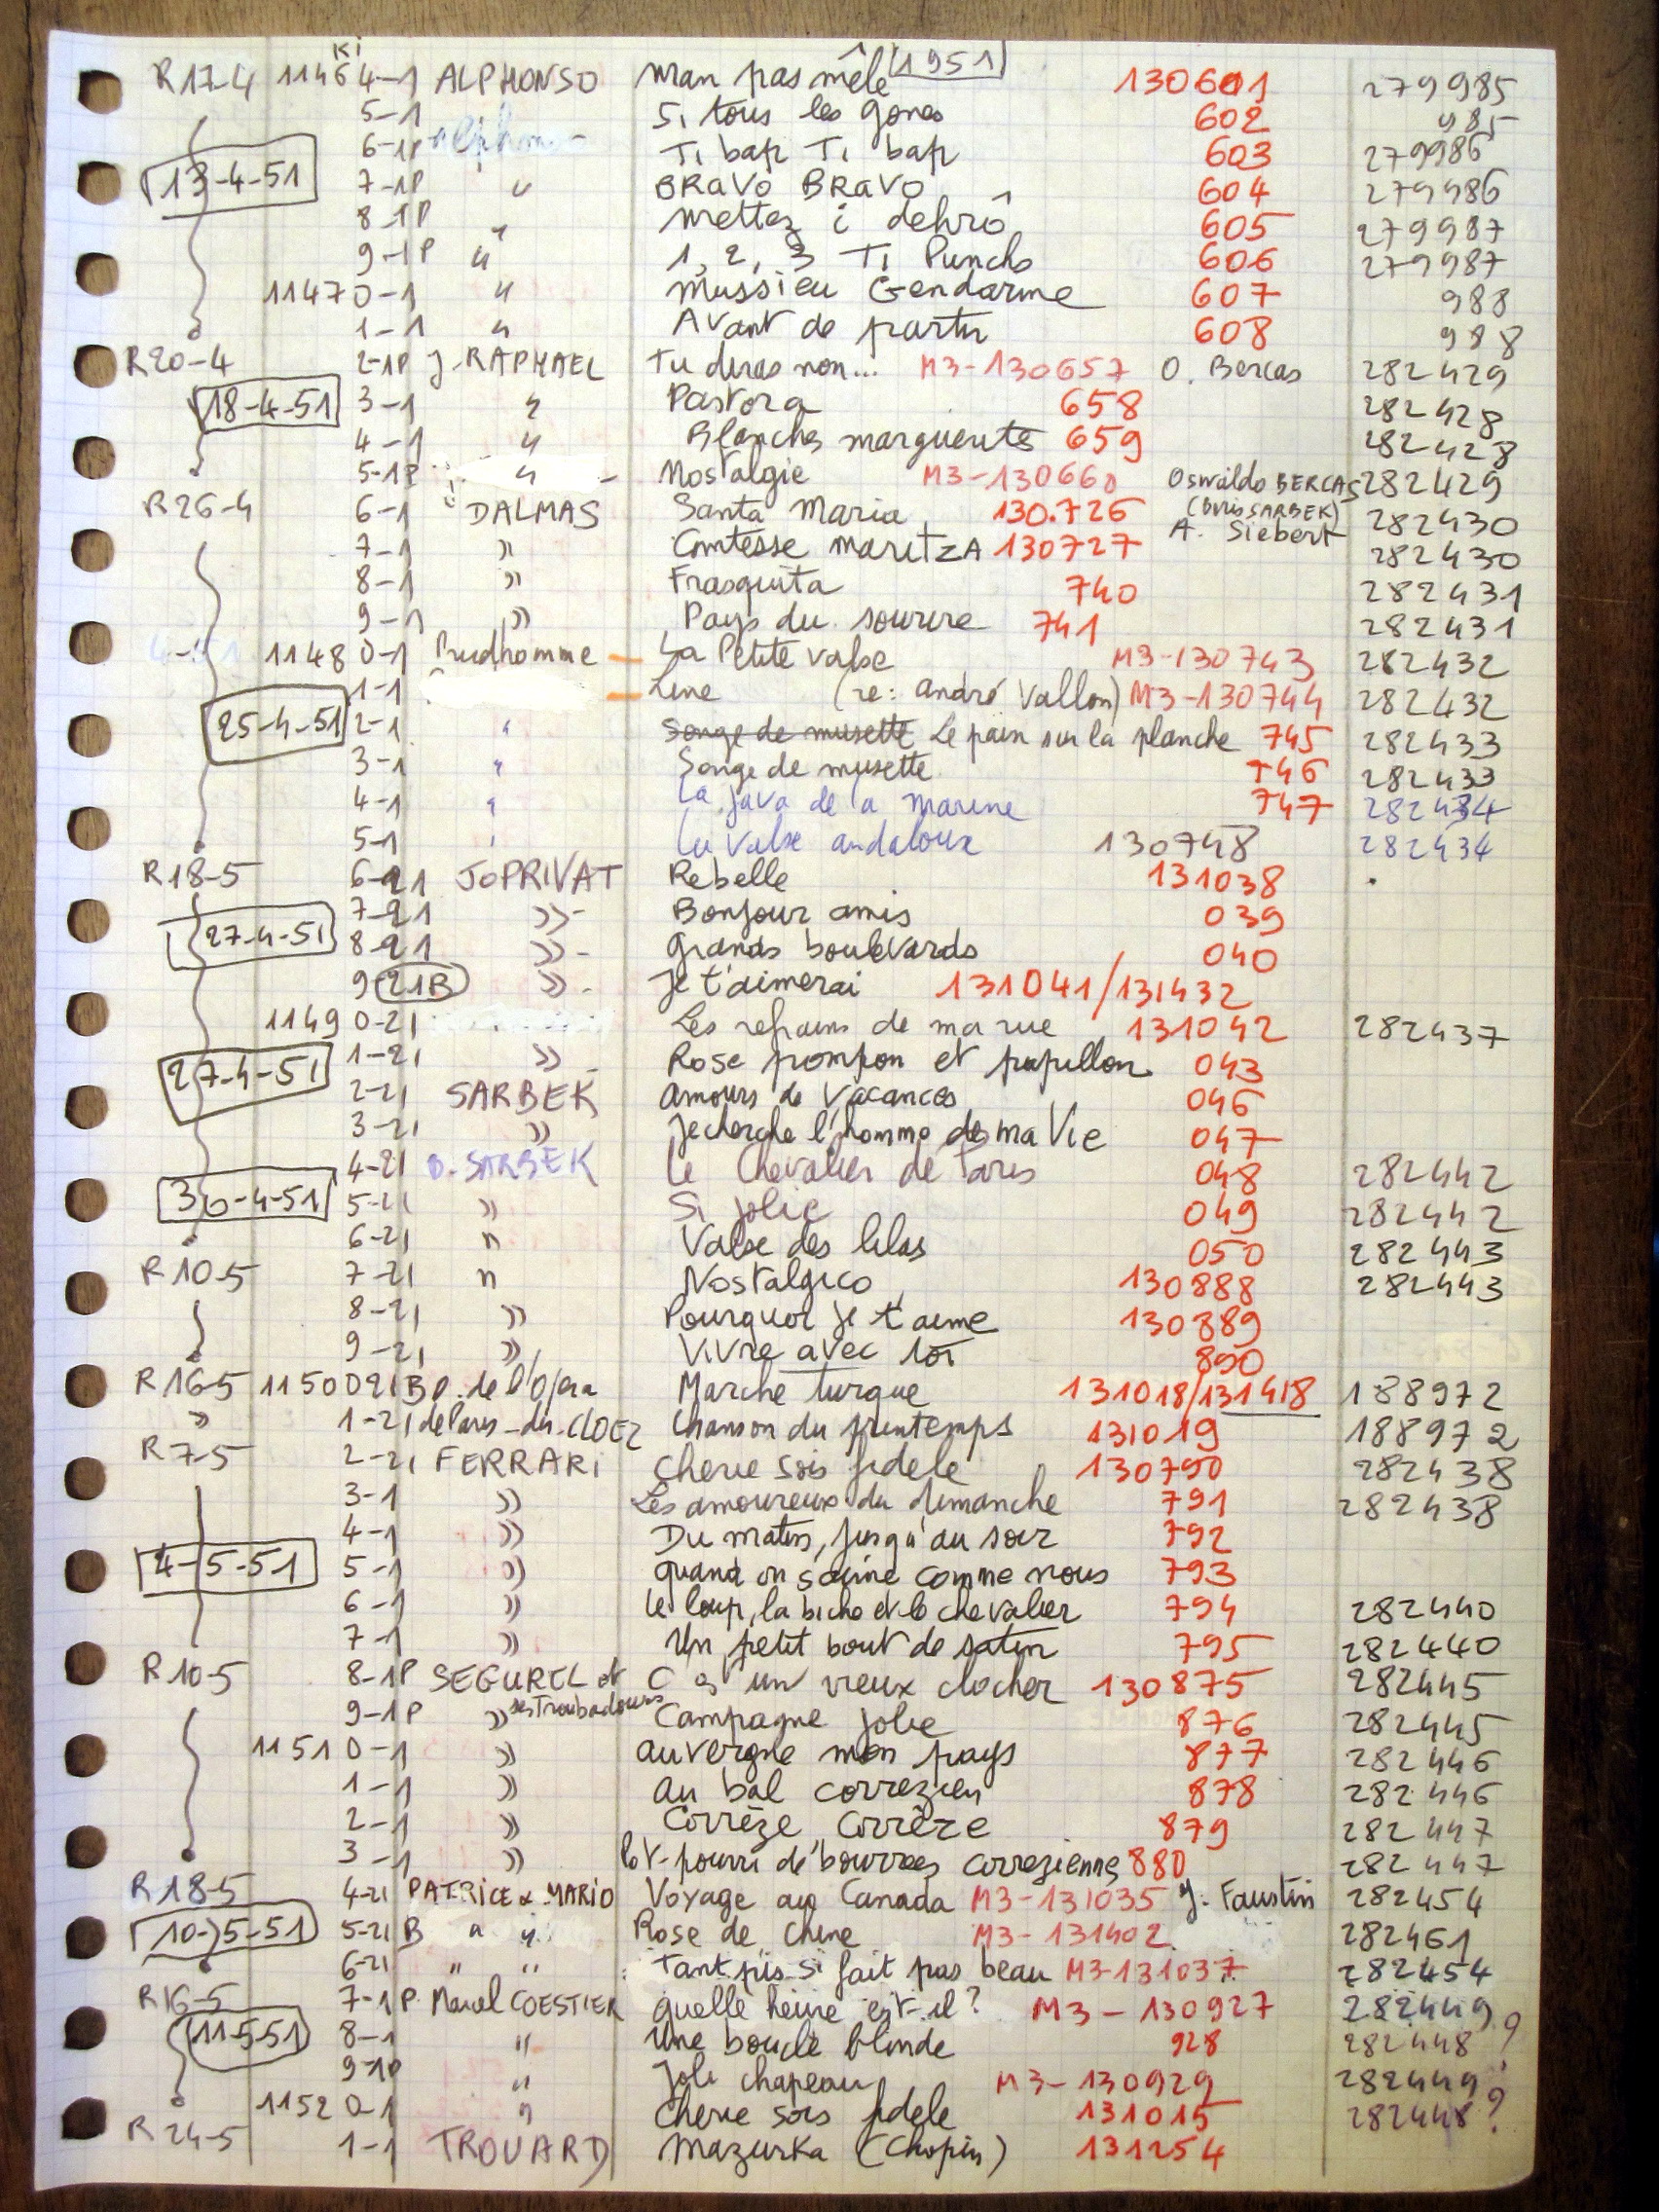 1951
Ki
R17-4 11464-1 ALPHONSO Man pas mêlé 130601 279985
5-1 Si tous les gones 602 985
6-1P Ti bap Ti bap 603 279986
13-4-51 7-1P " BRAVO BRAVO 604 279986
8-1P " Mettez i dehrô 605 279987
9-1P " 1, 2, 3 Ti Punchs 606 279987
11470-1 " Mussieu Gendarme 607 988
1-1 " Avant de partir 608 988
R20-4 2-1P J. RAPHAEL Tu diras non... M3-130657 O. Bercas 282429
18-4-51 3-1 " Pastora 658 282428
4-1 " Blanches marguerites 659 282428
5-1P " Nostalgie M3-130660 Oswaldo BERCAS 282429
(Boris SARBEK)
R26-4 6-1 DALMAS Santa Maria 130.726 A. Siebert 282430
7-1 » Comtesse MaritzA 130727 282430
8-1 » Frasquita 740 282431
9-1 » Pays du sourire 741 282431
11480-1 Prudhomme La Petite valse M3-130743 282432
1-1 Line (re: andré Vallon) M3-130744 282432
25-4-51 2-1 " Songe de musette Le pain sur la planche 745 282433
3-1 " Songe de musette 746 282433
4-1 " La java de la marine 747 282434
5-1 " La Valse andalouse 130748 282434
R18-5 6-21 JO PRIVAT Rebelle 131038
7-21 » - Bonjour amis 039
27-4-51 8-21 » - Grands boulevards 040
9 21B » - Je t'aimerai 131041/131432
11490-21 Les refrains de ma rue 131042 282437
27-4-51 1-21 » - Rose pompon et papillon 043
2-21 SARBEK Amours de Vacances 046
3-21 » Je cherche l'homme de ma Vie 047
4-21 B. SARBEK Le Chevalier de Paris 048 282442
30-4-51 5-21 » Si jolie 049 282442
6-21 " Valse des lilas 050 282443
R10-5 7-21 " Nostalgico 130888 282443
8-21 » Pourquoi je t'aime 130889
9-21 » Vivre avec toi 890
R16-5 1150021 B P. de l'Opéra Marche turque 131018/131418 188972
» 1-21 de Paris - dir. CLOEZ Chanson du printemps 131019 188972
R7-5 2-21 FERRARI Cherie sois fidele 130790 282438
3-1 » Les amoureux du dimanche 791 282438
4-1 » Du matin, jusqu'au soir 792
4-5-51 5-1 » Quand on s'aime comme nous 793
6-1 » Le loup, la biche et le chevalier 794 282440
7-1 » Un petit bout de satin 795 282440
R10-5 8-1P SEGUREL et C'est un vieux clocher 130875 282445
9-1P » ses Troubadours Campagne jolie 876 282445
11510-1 » Auvergne mon pays 877 282446
1-1 » Au bal correzien 878 282446
2-1 » Corrèze Corrèze 879 282447
3-1 » Pot-pourri de bourrées correziennes 880 282447
R18-5 4-21 PATRICE & MARIO Voyage au Canada M3-131035 J. Faustin 282454
10-5-51 5-21 B " " Rose de Chine M3-131402 282461
6-21 " " Tant pis si fait pas beau M3-131037 282454
R16-5 7-1P Marcel COESTIER Quelle heure est-il? M3-130927 282449
11-5-51 8-1 " Une boucle blonde 928 282448 ?
9-10 " Joli chapeau M3-130929 282449
11520-1 " Cherie sois fidele 131015 282448 ?
R24-5 1-1 TROUARD Mazurka (Chopin) 131254